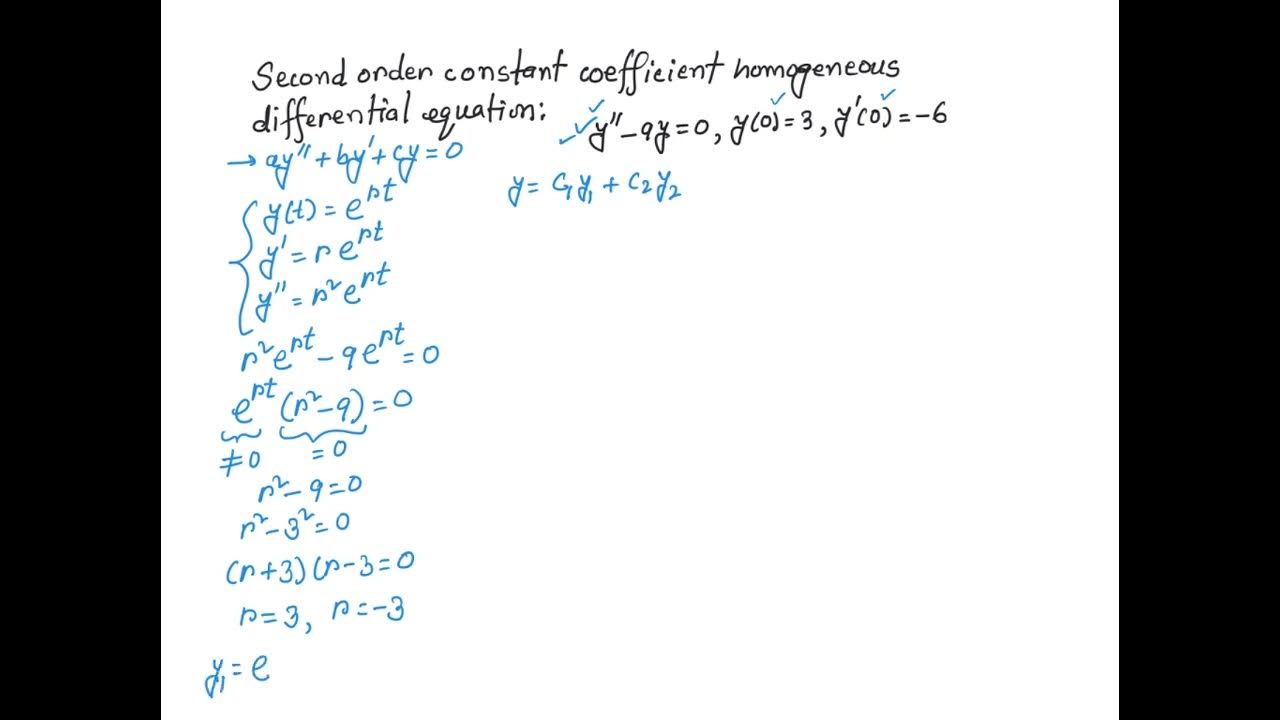 Second order constant coefficient homogeneous
differential equation: y'' - 9y = 0, y(0) = 3, y'(0) = -6
→ ay'' + by' + cy = 0
y = c₁y₁ + c₂y₂
y(t) = e^{rt}
y' = r e^{rt}
y'' = r² e^{rt}
r² e^{rt} - 9 e^{rt} = 0
e^{rt} (r² - 9) = 0
≠ 0 = 0
r² - 9 = 0
r² - 3² = 0
(r + 3) (r - 3 = 0
r = 3, r = -3
y₁ = e